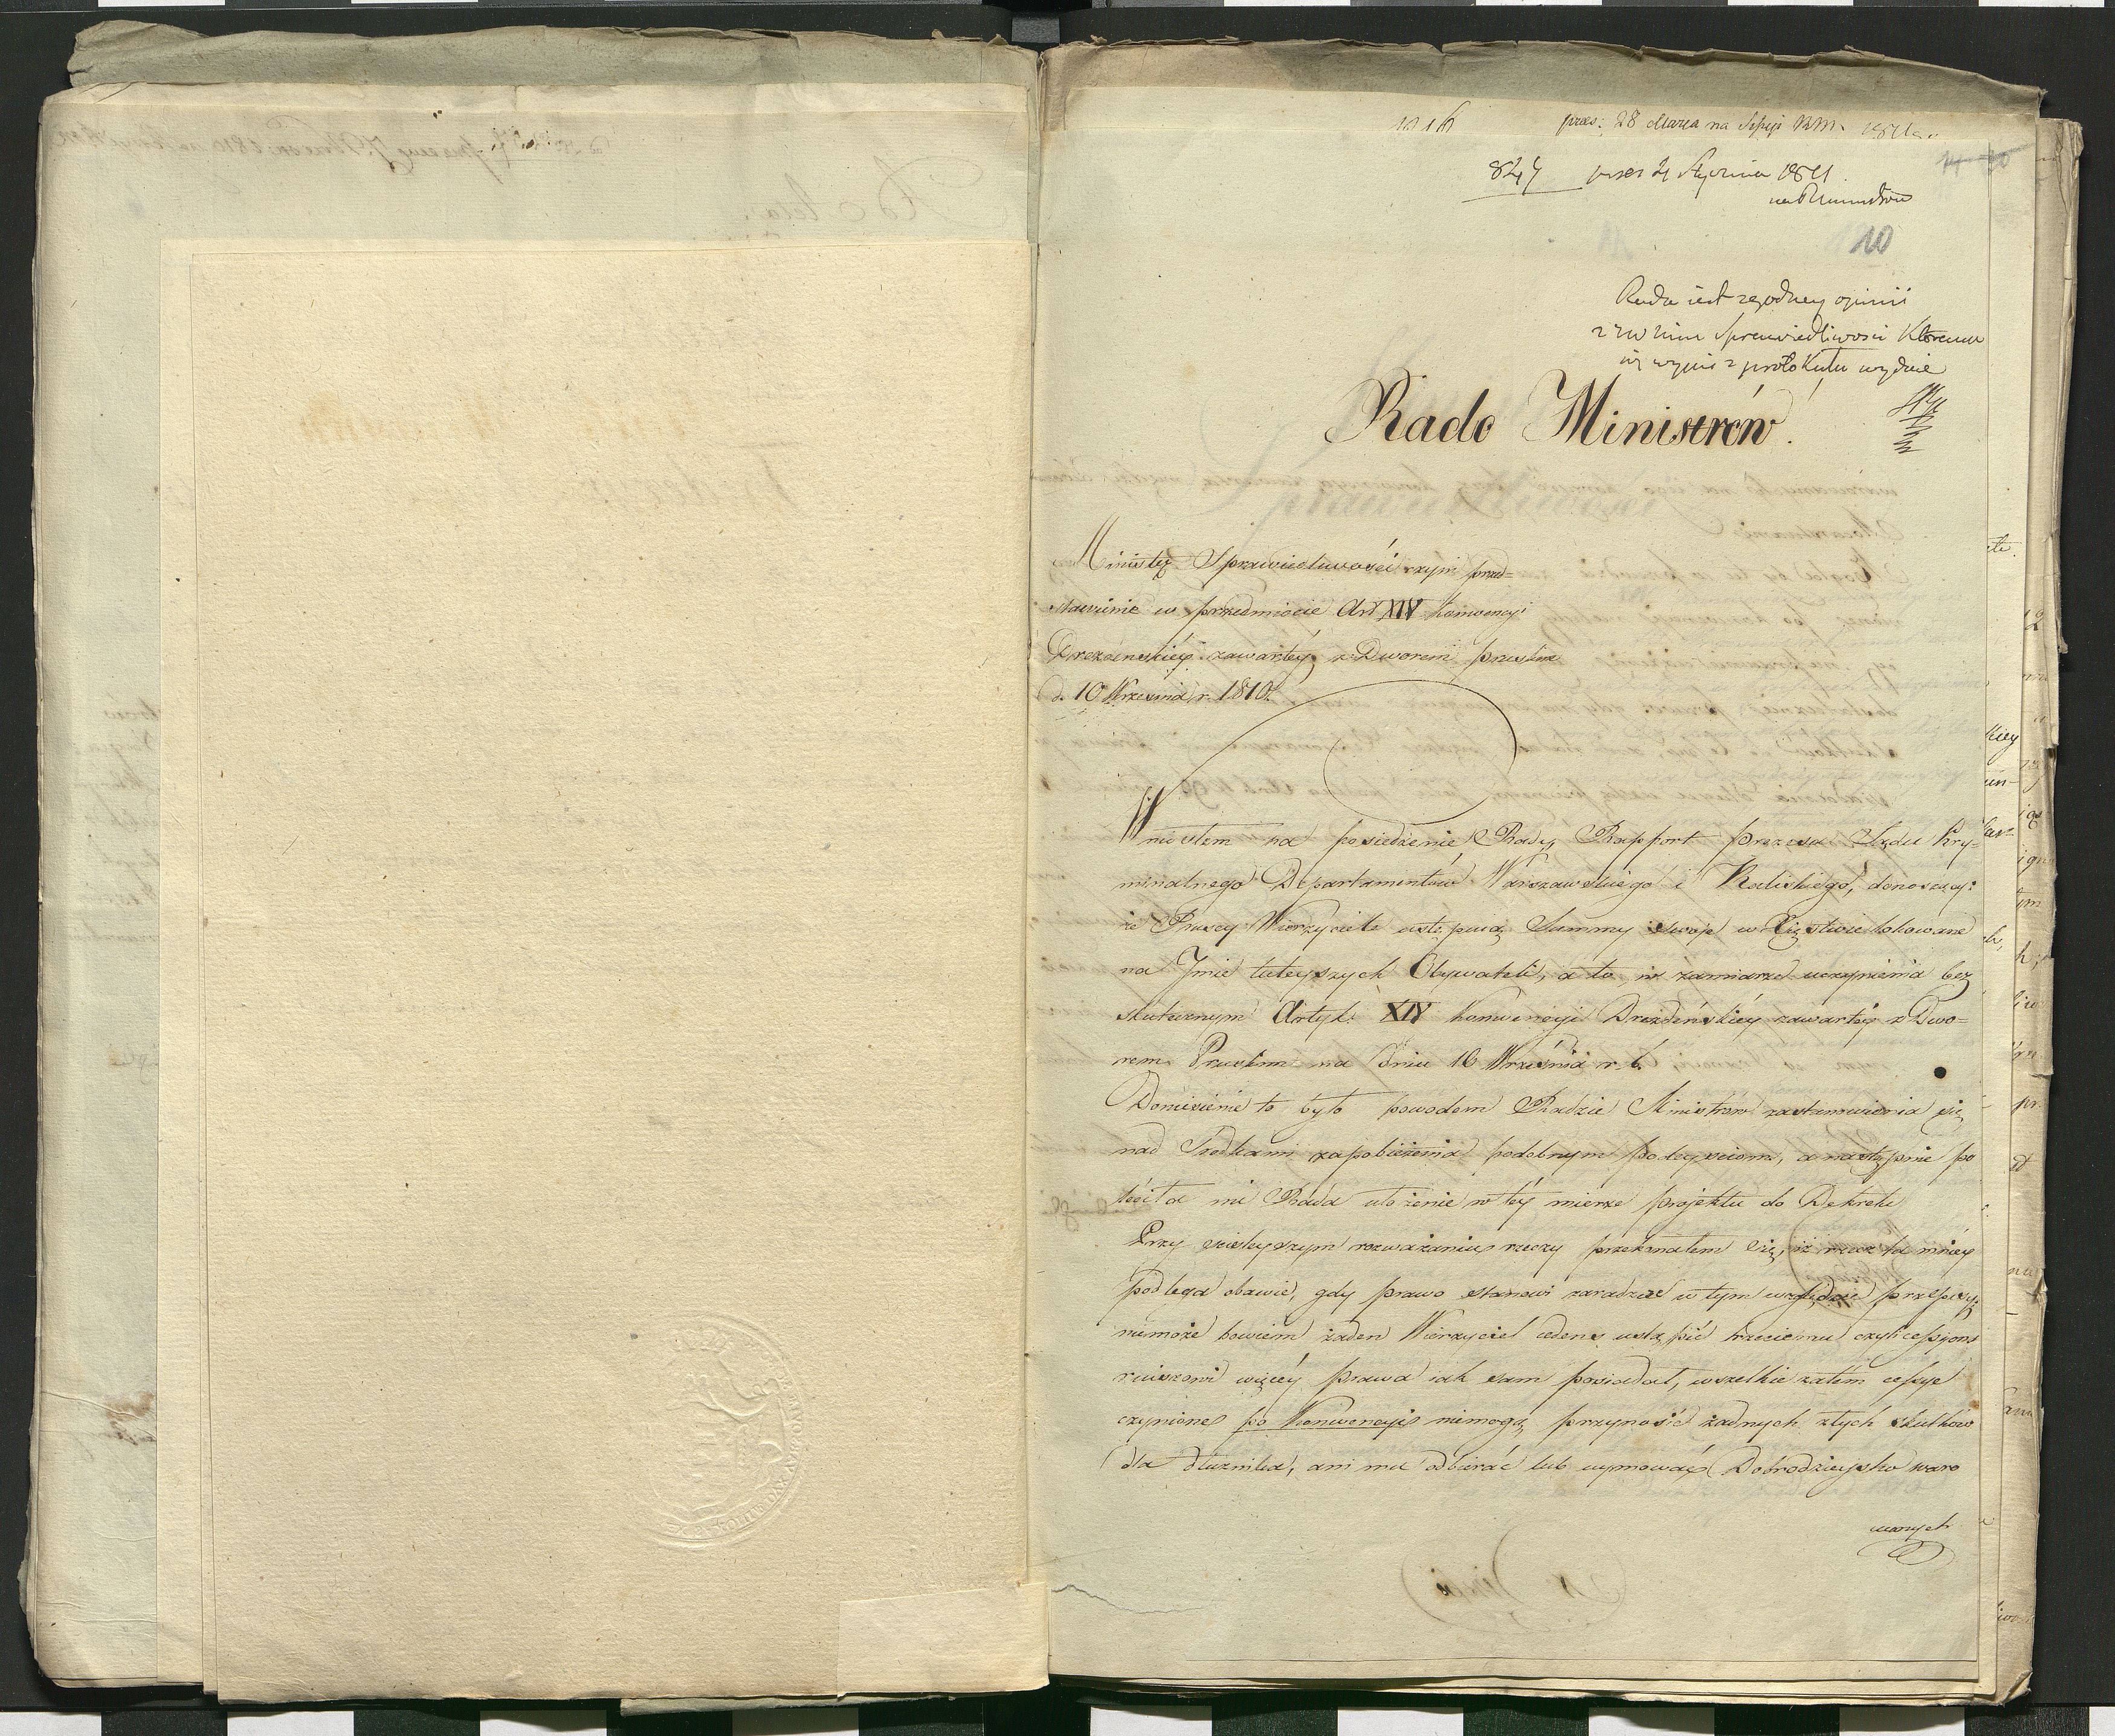 1016 pres: 28 Marca na Sessji RM. 1811
827 pres 21 Stycznia 1811
10
Rada iest zgodney opinii
z JW Nim Sprawiedliwosci Któremu
się wypis z protokułu wydaie
Rado Ministrów.
Minister Sprawiedliwości czyni przed=
stawienie w przedmiocie Art XIV Konwencyi
Drezdeńskiéy zawartéy z Dworem pruskim
d. 10 Września r. 1810.
Wniosłem na posiedzenie Rady Rapport prezesa Sądu Kry=
minalnego Departamentów Warszawskiego i Kaliskiego, donoszący:
że Pruscy Wierzyciele ustępuią Summy swoje w Xięstwie lokowane
na Jmie tuteyszych Obywateli, a to w zamiarze uczynienia bez
skutecznym Artyk: XIV Konwencyi Drezdeńskiéy zawartéy z Dwo=
rem Pruskim na dniu 10 Września r. b.
Doniesienie to było powodem Radzie Ministrów zastanowienia się
nad Srodkami zapobieżenia podobnym podeysciom, a następnie po
leciła mi Rada ułożenie w téy mierze projektu do Dekretu
Przy scisleyszym rozważaniu rzeczy przekonałem się, iż rzecz ta mniey
podlega obawie, gdy prawo stanowi zaradcze w tym względzie przepisy
niemoże bowiem żaden Wierzyciel cedens ustąpić trzeciemu czyli cessyona
riuszowi więcéy prawa iak sam posiadał, wszelkie zatém cessye
czynione po Konwencyi niemogą przynosić żadnych złych skutków
dla dłużnika, ani mu odbierać lub uymować Dobrodzieystw waro
wanych